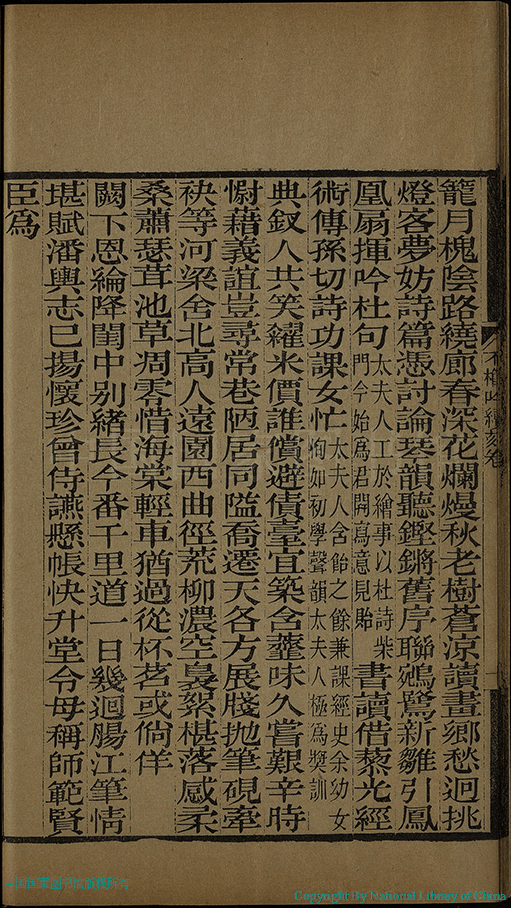 籠月槐陰路繞廊春深花爛熳秋老樹蒼涼讀畫鄉愁迴挑
燈客夢妨詩篇憑討論琴韻聽鏗鏘舊序聯鵷鷺新雛引鳳
凰扇揮吟杜句太夫人工於繪事以杜詩柴門今始為君開寫意見貽書讀借藜光經
術傳孫切詩功課女忙太夫人含飴之餘兼課經史余幼女恂如初學聲韻太夫人極為獎訓
典釵人共笑糴米價誰償避債臺宜築含虀味久嘗艱辛時
慰藉義誼豈尋常巷陋居同隘喬遷天各方展牋拋筆硯牽
袂等河梁舍北高人遠園西曲徑荒柳濃空裊絮棋落感柔
桑蕭瑟葺池草凋零惜海棠輕車猶過從杯茗或倘佯
闕下恩綸降閨中別緒長今番千里道一日幾迴腸江筆情
堪賦潘輿志已揚懷珍曾侍讌懸帳快升堂令母稱師範賢
臣為
吟續刻卷
Copyright By National Library of China